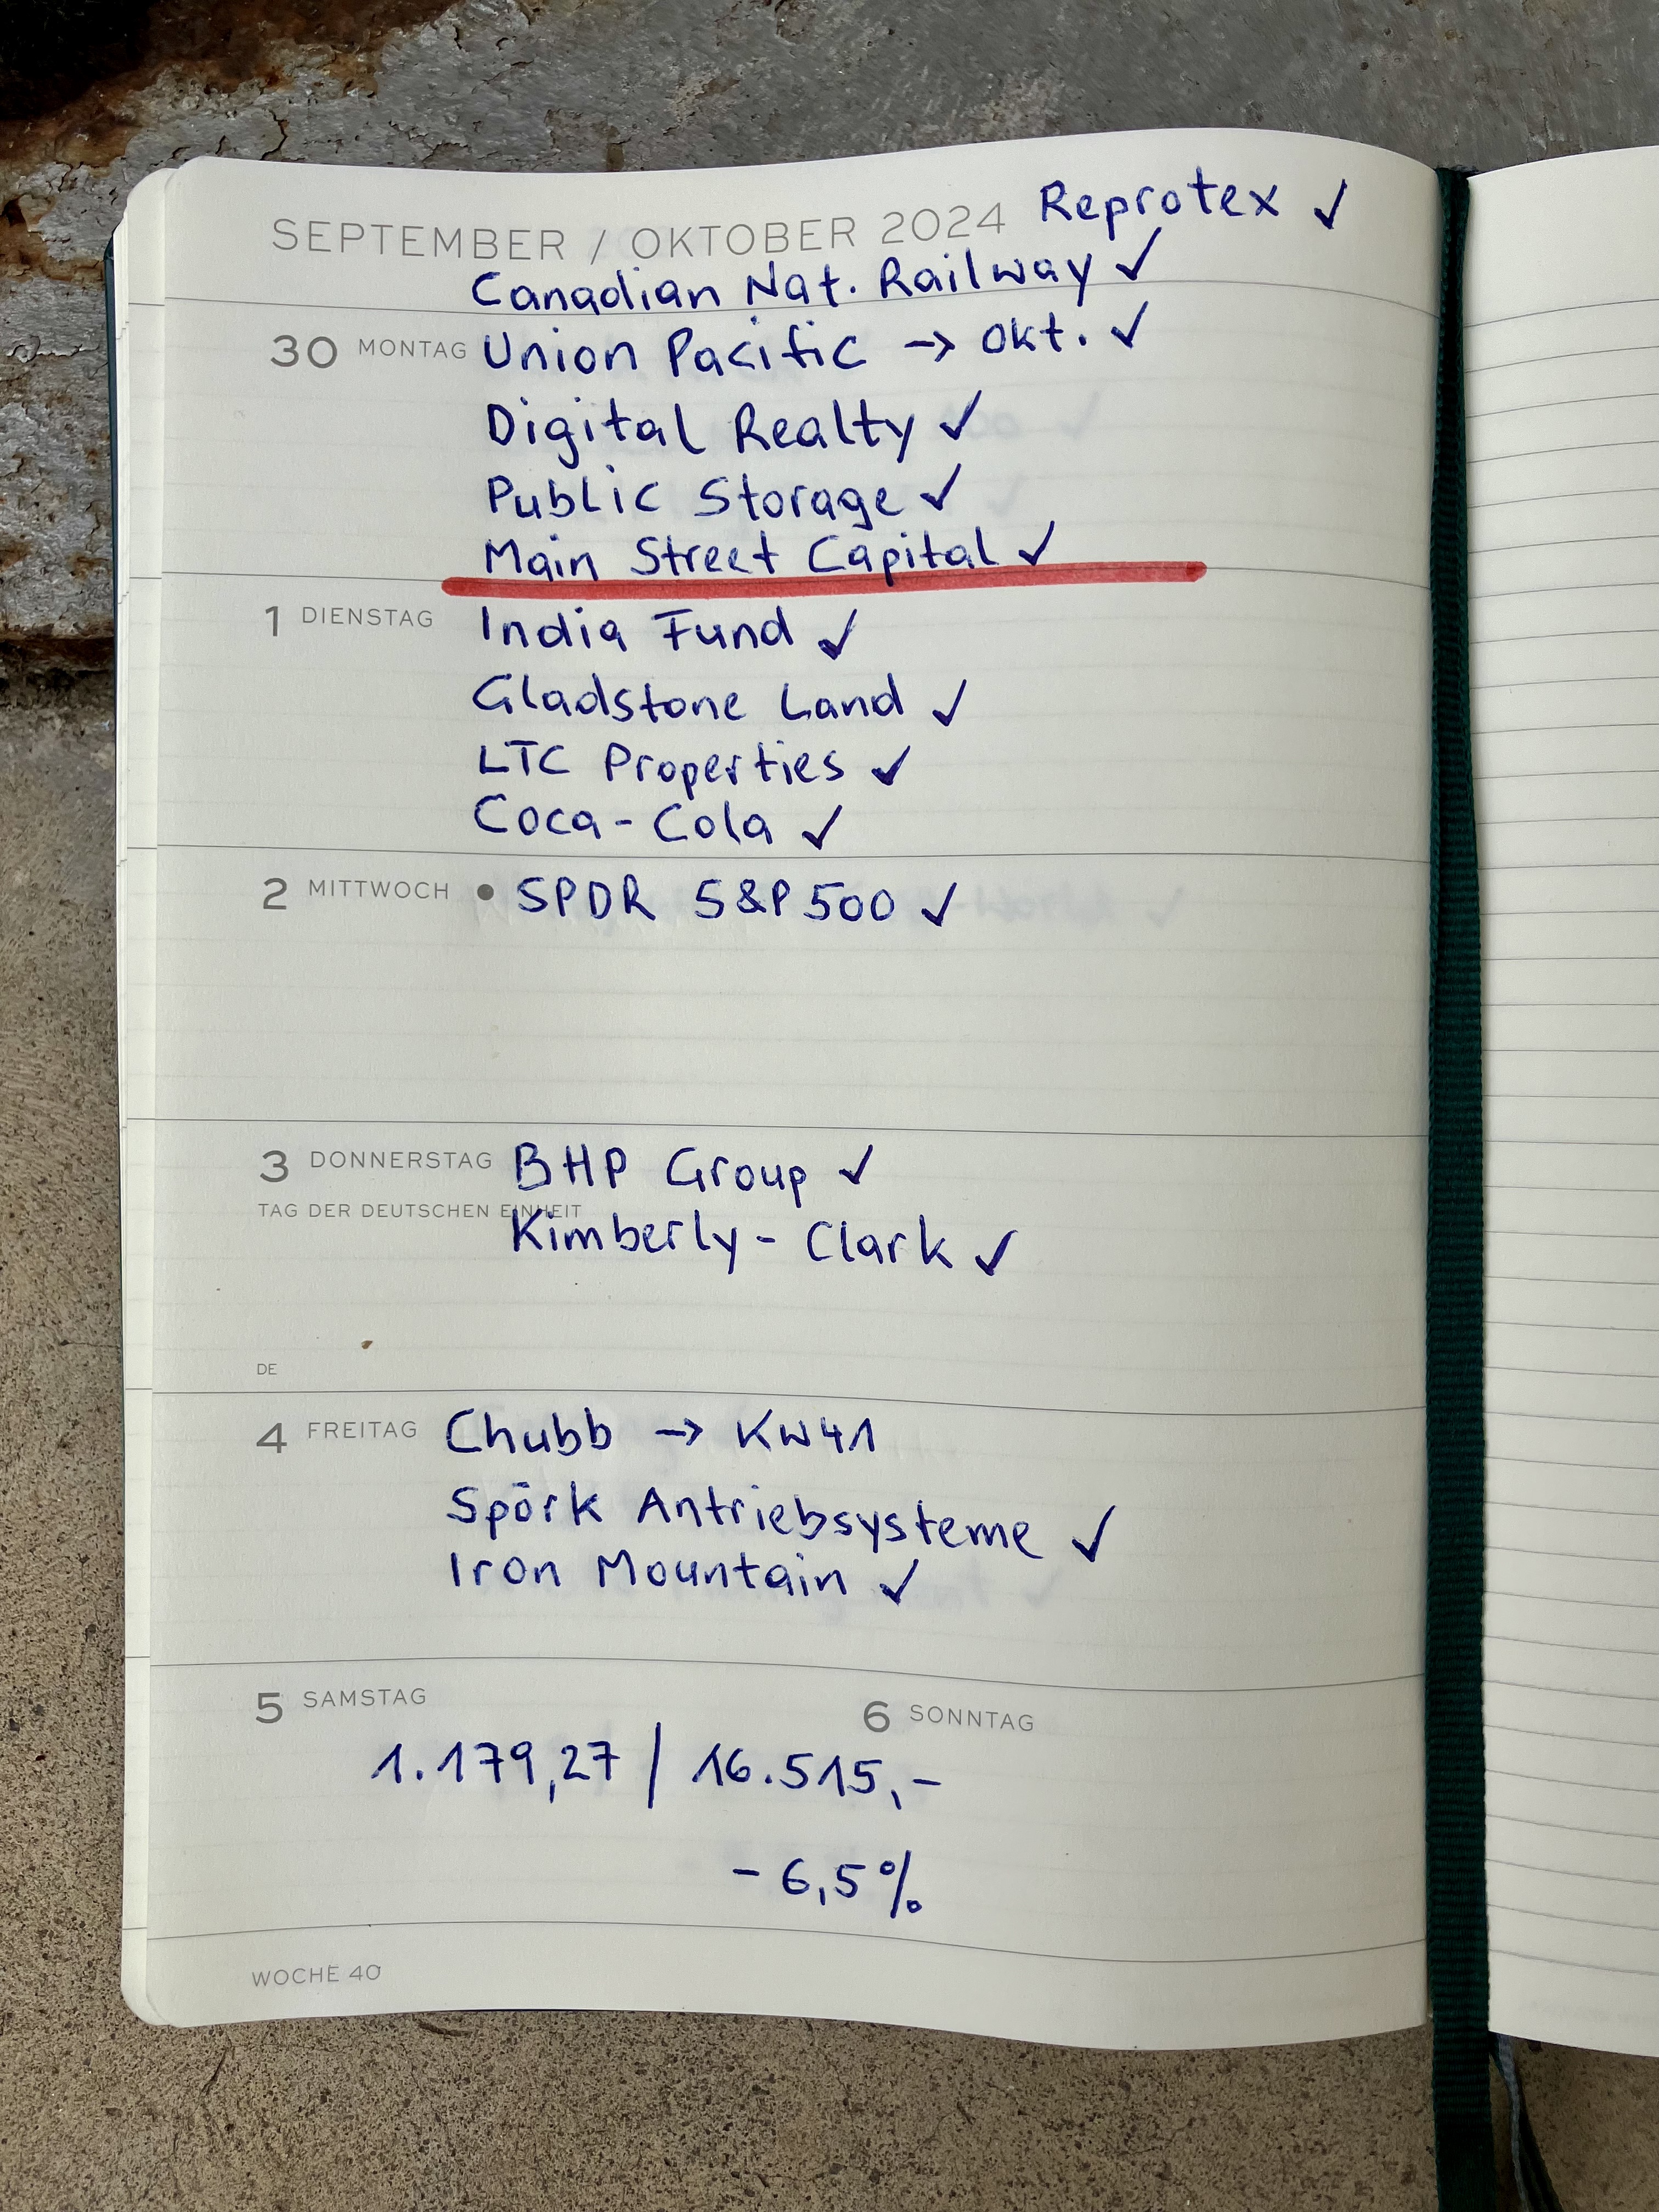 SEPTEMBER / OKTOBER 2024 Reprotex ✓
Canadian Nat. Railway ✓
30 MONTAG Union Pacific → Okt. ✓
Digital Realty ✓
Public Storage ✓
Main Street Capital ✓
1 DIENSTAG India Fund ✓
Gladstone Land ✓
LTC Properties ✓
Coca-Cola ✓
2 MITTWOCH ● SPDR S&P 500 ✓
3 DONNERSTAG BHP Group ✓
TAG DER DEUTSCHEN EINHEIT
Kimberly-Clark ✓
DE
4 FREITAG Chubb → KW41
Spörk Antriebsysteme ✓
Iron Mountain ✓
5 SAMSTAG 6 SONNTAG
1.179,27 / 16.515,-
- 6,5%
WOCHE 40